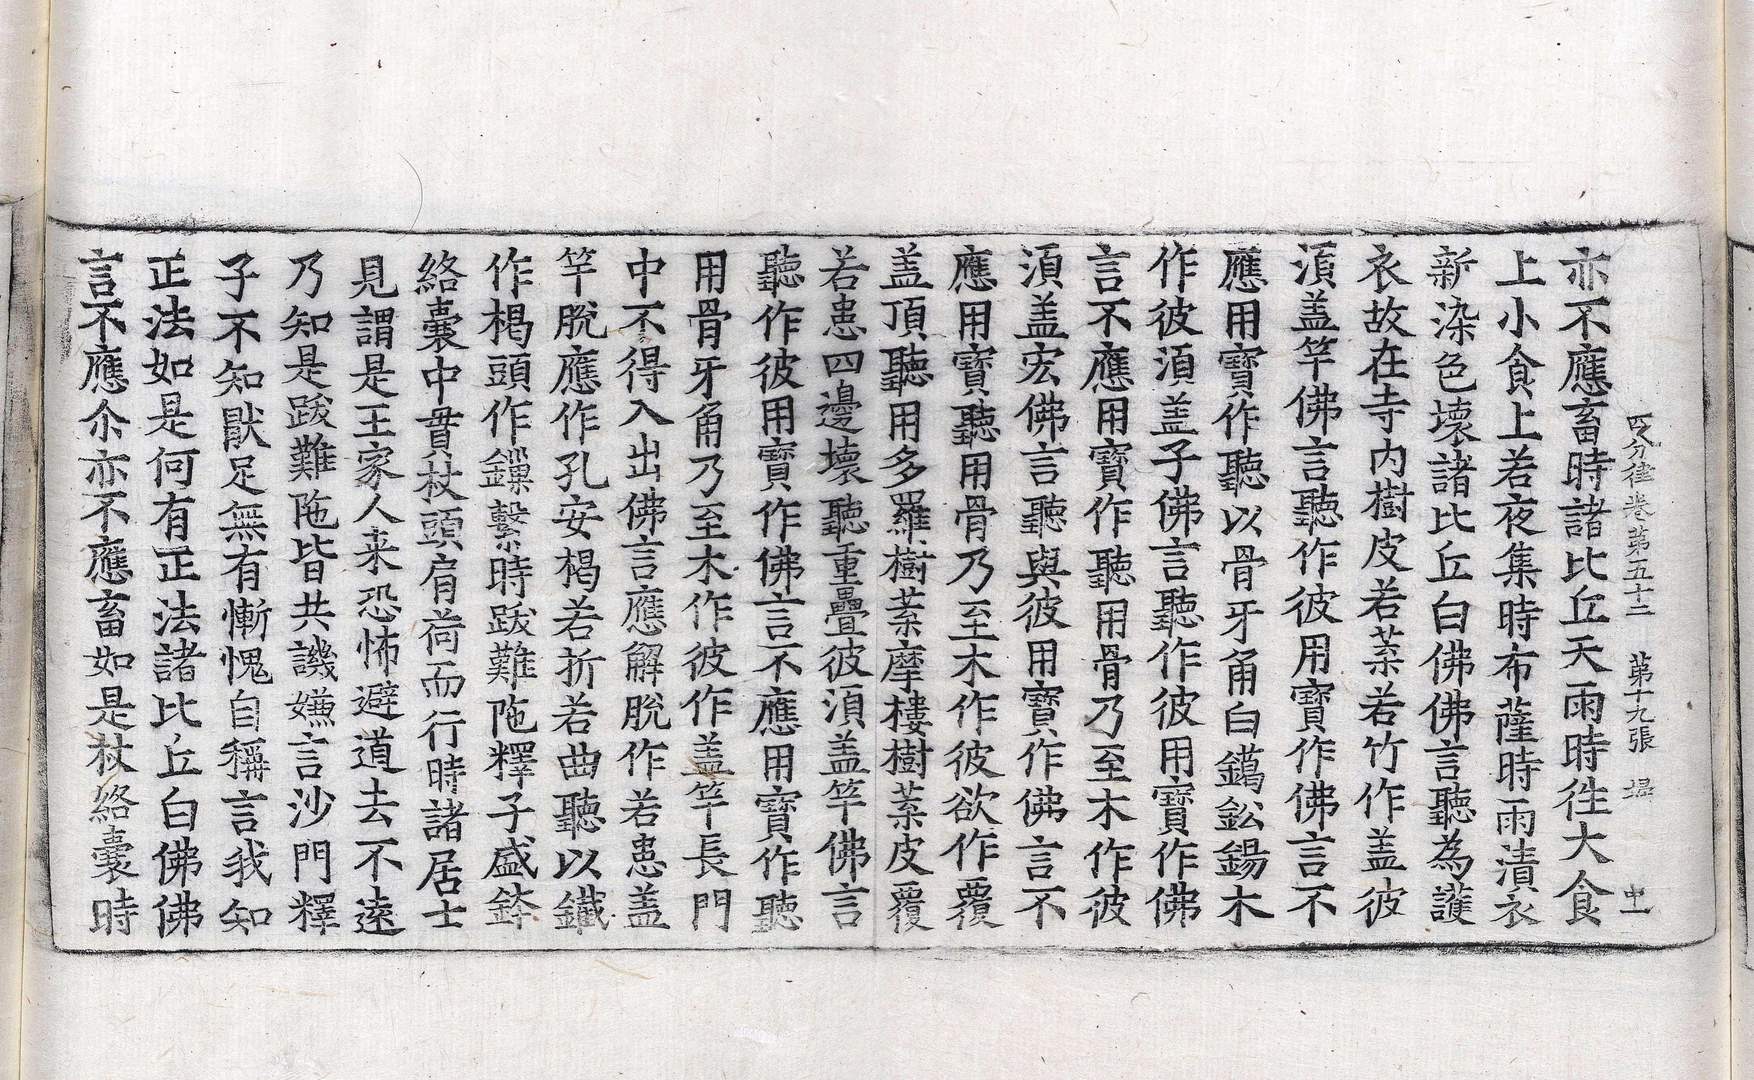 四分律卷第五十二　第十九張　堀
亦不應畜時諸比丘天雨時徃大食
上小食上若夜集時布薩時雨漬衣
新染色壞諸比丘白佛佛言聽為護
衣故在寺内樹皮若葉若竹作盖彼
湏盖竿佛言聽作彼用寶作佛言不
應用寶作聽以骨牙角白鑞鈆錫木
作彼湏盖子佛言聽作彼用寶作佛
言不應用寶作聽用骨乃至木作彼
湏盖宏佛言聽與彼用寶作佛言不
應用寶聽用骨乃至木作彼欲作覆
盖頂聽用多羅樹葉摩樓樹葉皮覆
若患四邊壞聽重疊彼湏盖竿佛言
聽作彼用寶作佛言不應用寶作聽
用骨牙角乃至木作彼作盖竿長門
中不得入出佛言應解脫作若患盖
竿脫應作孔安楬若折若曲聽以鐵
作楬頭作鏁繫時跋難陁釋子盛鉢
絡囊中貫杖頭肩荷而行時諸居士
見謂是王家人来恐怖避道去不遠
乃知是跋難陁皆共譏嫌言沙門釋
子不知猒足無有慚愧自稱言我知
正法如是何有正法諸比丘白佛佛
言不應尒亦不應畜如是杖絡囊時